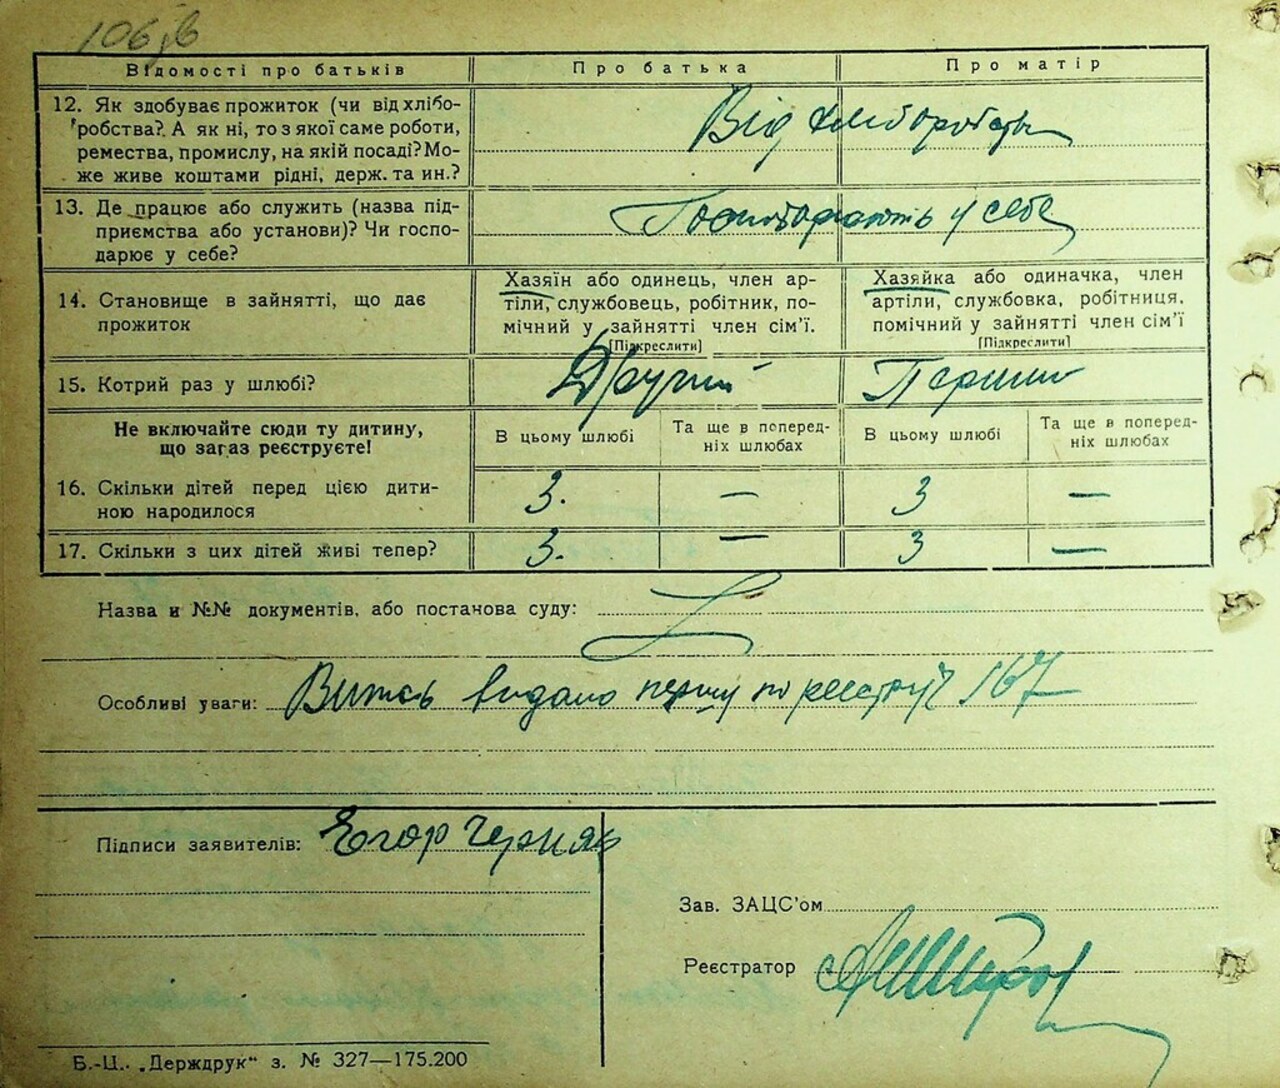 106 зв
Відомості про батьків
Про батька
Про матір
12. Як здобуває прожиток (чи від хлібо-
робства?. А як ні, то з якої саме роботи,
ремества, промислу, на якій посаді? Мо-
же живе коштами рідні, держ. та ин.?
Від хліборобства
13. Де працює або служить (назва під-
приємства або установи)? Чи госпо-
дарює у себе?
Господарюють у себе
14. Становище в зайнятті, що дає
прожиток
Хазяїн або одинець, член ар-
тіли, службовець, робітник, по-
мічний у зайнятті член сім'ї.
[Підкреслити]
Хазяйка або одиначка, член
артіли, службовка, робітниця.
помічний у зайнятті член сім'ї
[Підкреслити]
15. Котрий раз у шлюбі?
Другий
Перший
Не включайте сюди ту дитину,
що загаз реєструєте!
В цьому шлюбі
Та ще в поперед-
ніх шлюбах
В цьому шлюбі
Та ще в поперед-
ніх шлюбах
16. Скільки дітей перед цією дити-
ною народилося
3. — 3 —
17. Скільки з цих дітей живі тепер?
3. — 3 —
Назва и №№ документів, або постанова суду:
Особливі уваги: Витяг видано першу по реєстру № 167
Підписи заявителів: Єгор Черняк
Зав. ЗАЦС'ом
Реєстратор
Б.-Ц. „Держдрук" з. № 327—175.200